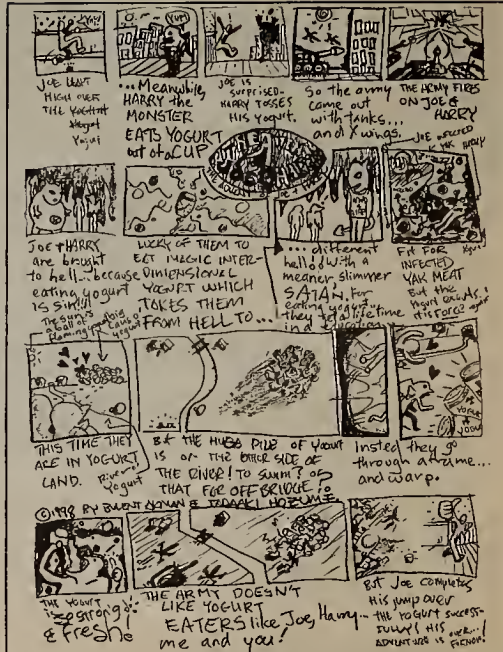 Yay!
JOE LEAPT
HIGH OVER
THE YOGHURT
YUM
...Meanwhile,
HARRY the
MONSTER
EATS YOGURT
out of a CUP
JOE IS
SURPRISED-
HARRY TOSSES
HIS Yogurt.
So the army
came out
with tanks...
and X wings.
THE ARMY FIRES
ON JOE &
HARRY
JOE & HARRY
are brought
to hell... because
eating yogurt
is SIN!!!
LUCKY OF THEM TO
EAT MAGIC INTER-
DIMENSIONAL
YOGURT WHICH
TAKES THEM
FROM HELL TO...
... different
hell! With a
meaner, slimmer
SATAN. For
eating yogurt...
they get a lifetime
JOE INFECTED
FIT FOR
INFECTED
YAK MEAT
But the
The sun is
a ball of
flaming yogurt
THIS TIME THEY
ARE IN YOGURT
LAND.
River of
Yogurt
But THE HUGE PILE OF Yogurt
IS ON THE OTHER SIDE OF
THE RIVER! TO SWIM? OR
THAT FAR OFF BRIDGE?
YOGURT
Insted they go
through a frame...
and warp.
©1998 BY
THE YOGURT
is so strong
& FRESH!
THE ARMY DOESN'T
LIKE YOGURT
EATERS like Joe, Harry...
me and you!
But JOE completes
His jump over
THE YOGURT SUCCESS-
FULLY! HIS
ADVENTURE is over...!